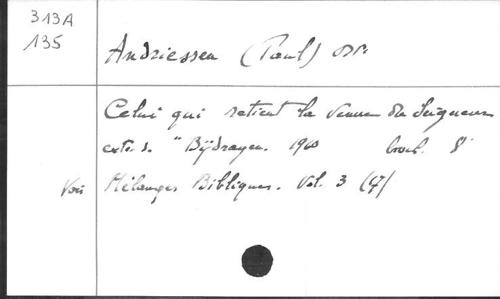 313A
135
Andriessen (Paul) OSB.
Celui qui retient la venue du Seigneur
extr. d. "Bijdragen. 1960 broch. 8°
Voir Mélanges Bibliques. Vol. 3 (4)